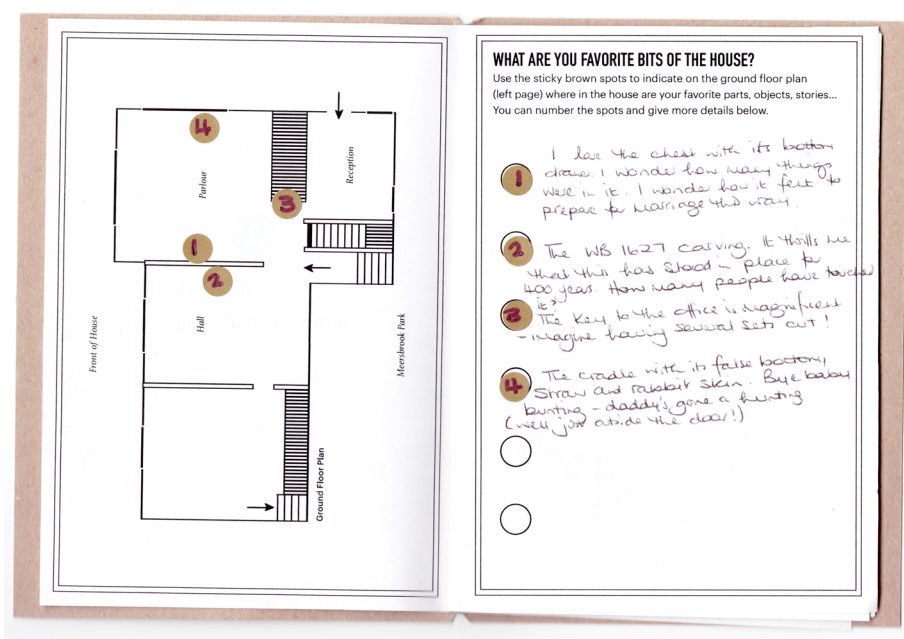 4
Parlour
3
Reception
1
2
Hall
Front of House
Meersbrook Park
Ground Floor Plan
WHAT ARE YOU FAVORITE BITS OF THE HOUSE?
Use the sticky brown spots to indicate on the ground floor plan
(left page) where in the house are your favorite parts, objects, stories...
You can number the spots and give more details below.
1
I love the chest with its bottom
drawer. I wonder how many things
were in it. I wonder how it felt to
prepare for marriage this way.
2
The WB 1627 carving. It thrills me
that this has stood in place for
400 years. How many people have touched
it?
3
The key to the office is magnificent
- imagine having several sets cut!
4
The cradle with its false bottom,
straw and rabbit skin. Bye baby
bunting - daddy's gone a hunting
(well, just outside the door!)